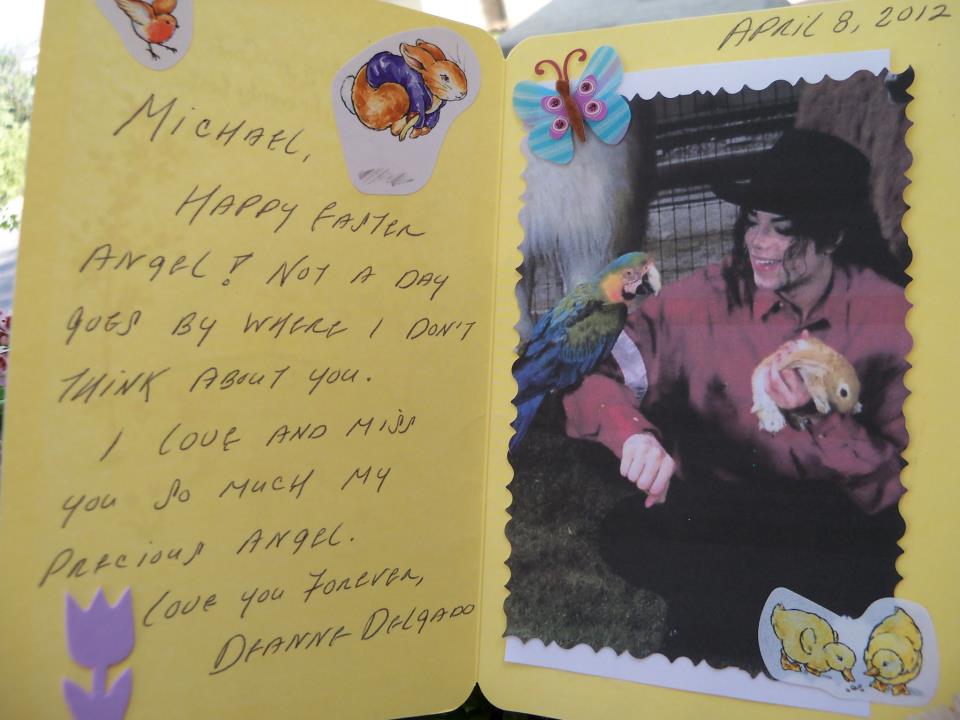 Michael,
Happy Easter
Angel! Not a day
goes by where I don't
think about you.
I love and miss
you so much my
precious angel.
Love you forever,
Deanne Delgado
April 8, 2012